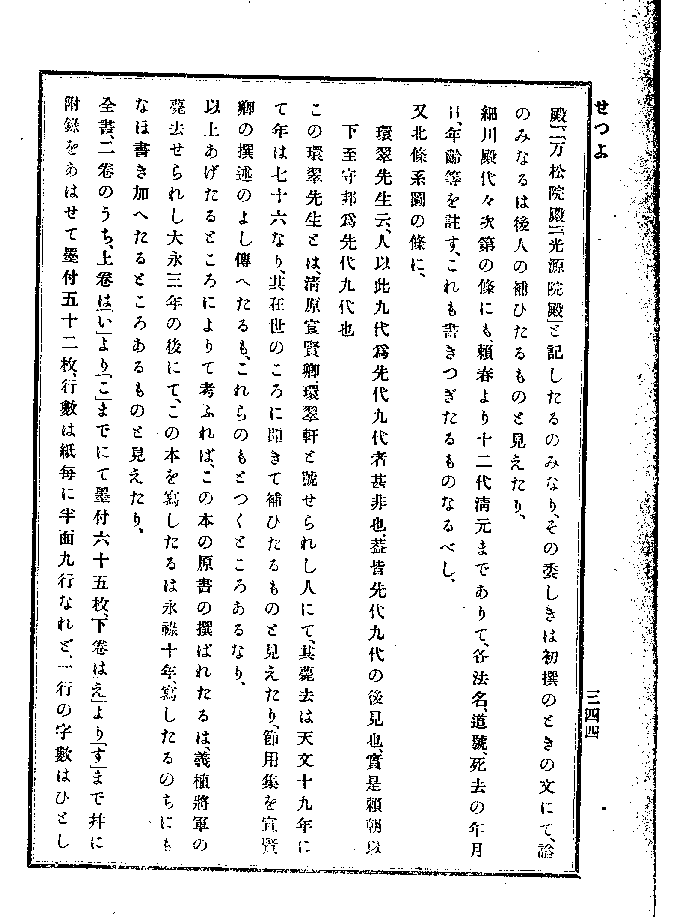 せつよ
三四四
殿「万松院殿「光源院殿」と記したるのみなり、その委しきは初撰のときの文にて、諡
のみなるは後人の補ひたるものと見えたり、
細川殿代々次第の條にも賴春より十二代淸元までありて、各法名、道號、死去の年月
日、年齡等を註す、これも書きつぎたるものなるべし、
又北條系圖の條に、
環翠先生云、人以此九代爲先代九代者甚非也、蓋皆先代九代の後見也、實是賴朝以
下至守邦爲先代九代也
この環翠先生とは、淸原宣賢卿、環翠軒と號せられし人にて、其薨去は天文十九年に
て年は七十六なり、其在世のころに聞きて補ひたるものと見えたり、節用集を宣賢
卿の撰述のよし傳へたるも、これらのもとつくところあるなり、
以上あげたるところによりて考ふれば、この本の原書の撰ばれたるは、義植將軍の
薨去せられし大永三年の後にて、この本を寫したるは永祿十年、寫したるのちにも
なほ書き加へたるところあるものと見えたり、
全書、二卷のうち、上卷は「い」より「こ」までにて墨付六十五枚、下卷は「え」より「す」まで幷に
附錄をあはせて墨付五十二枚、行數は紙每に半面九行なれど、一行の字數はひとし